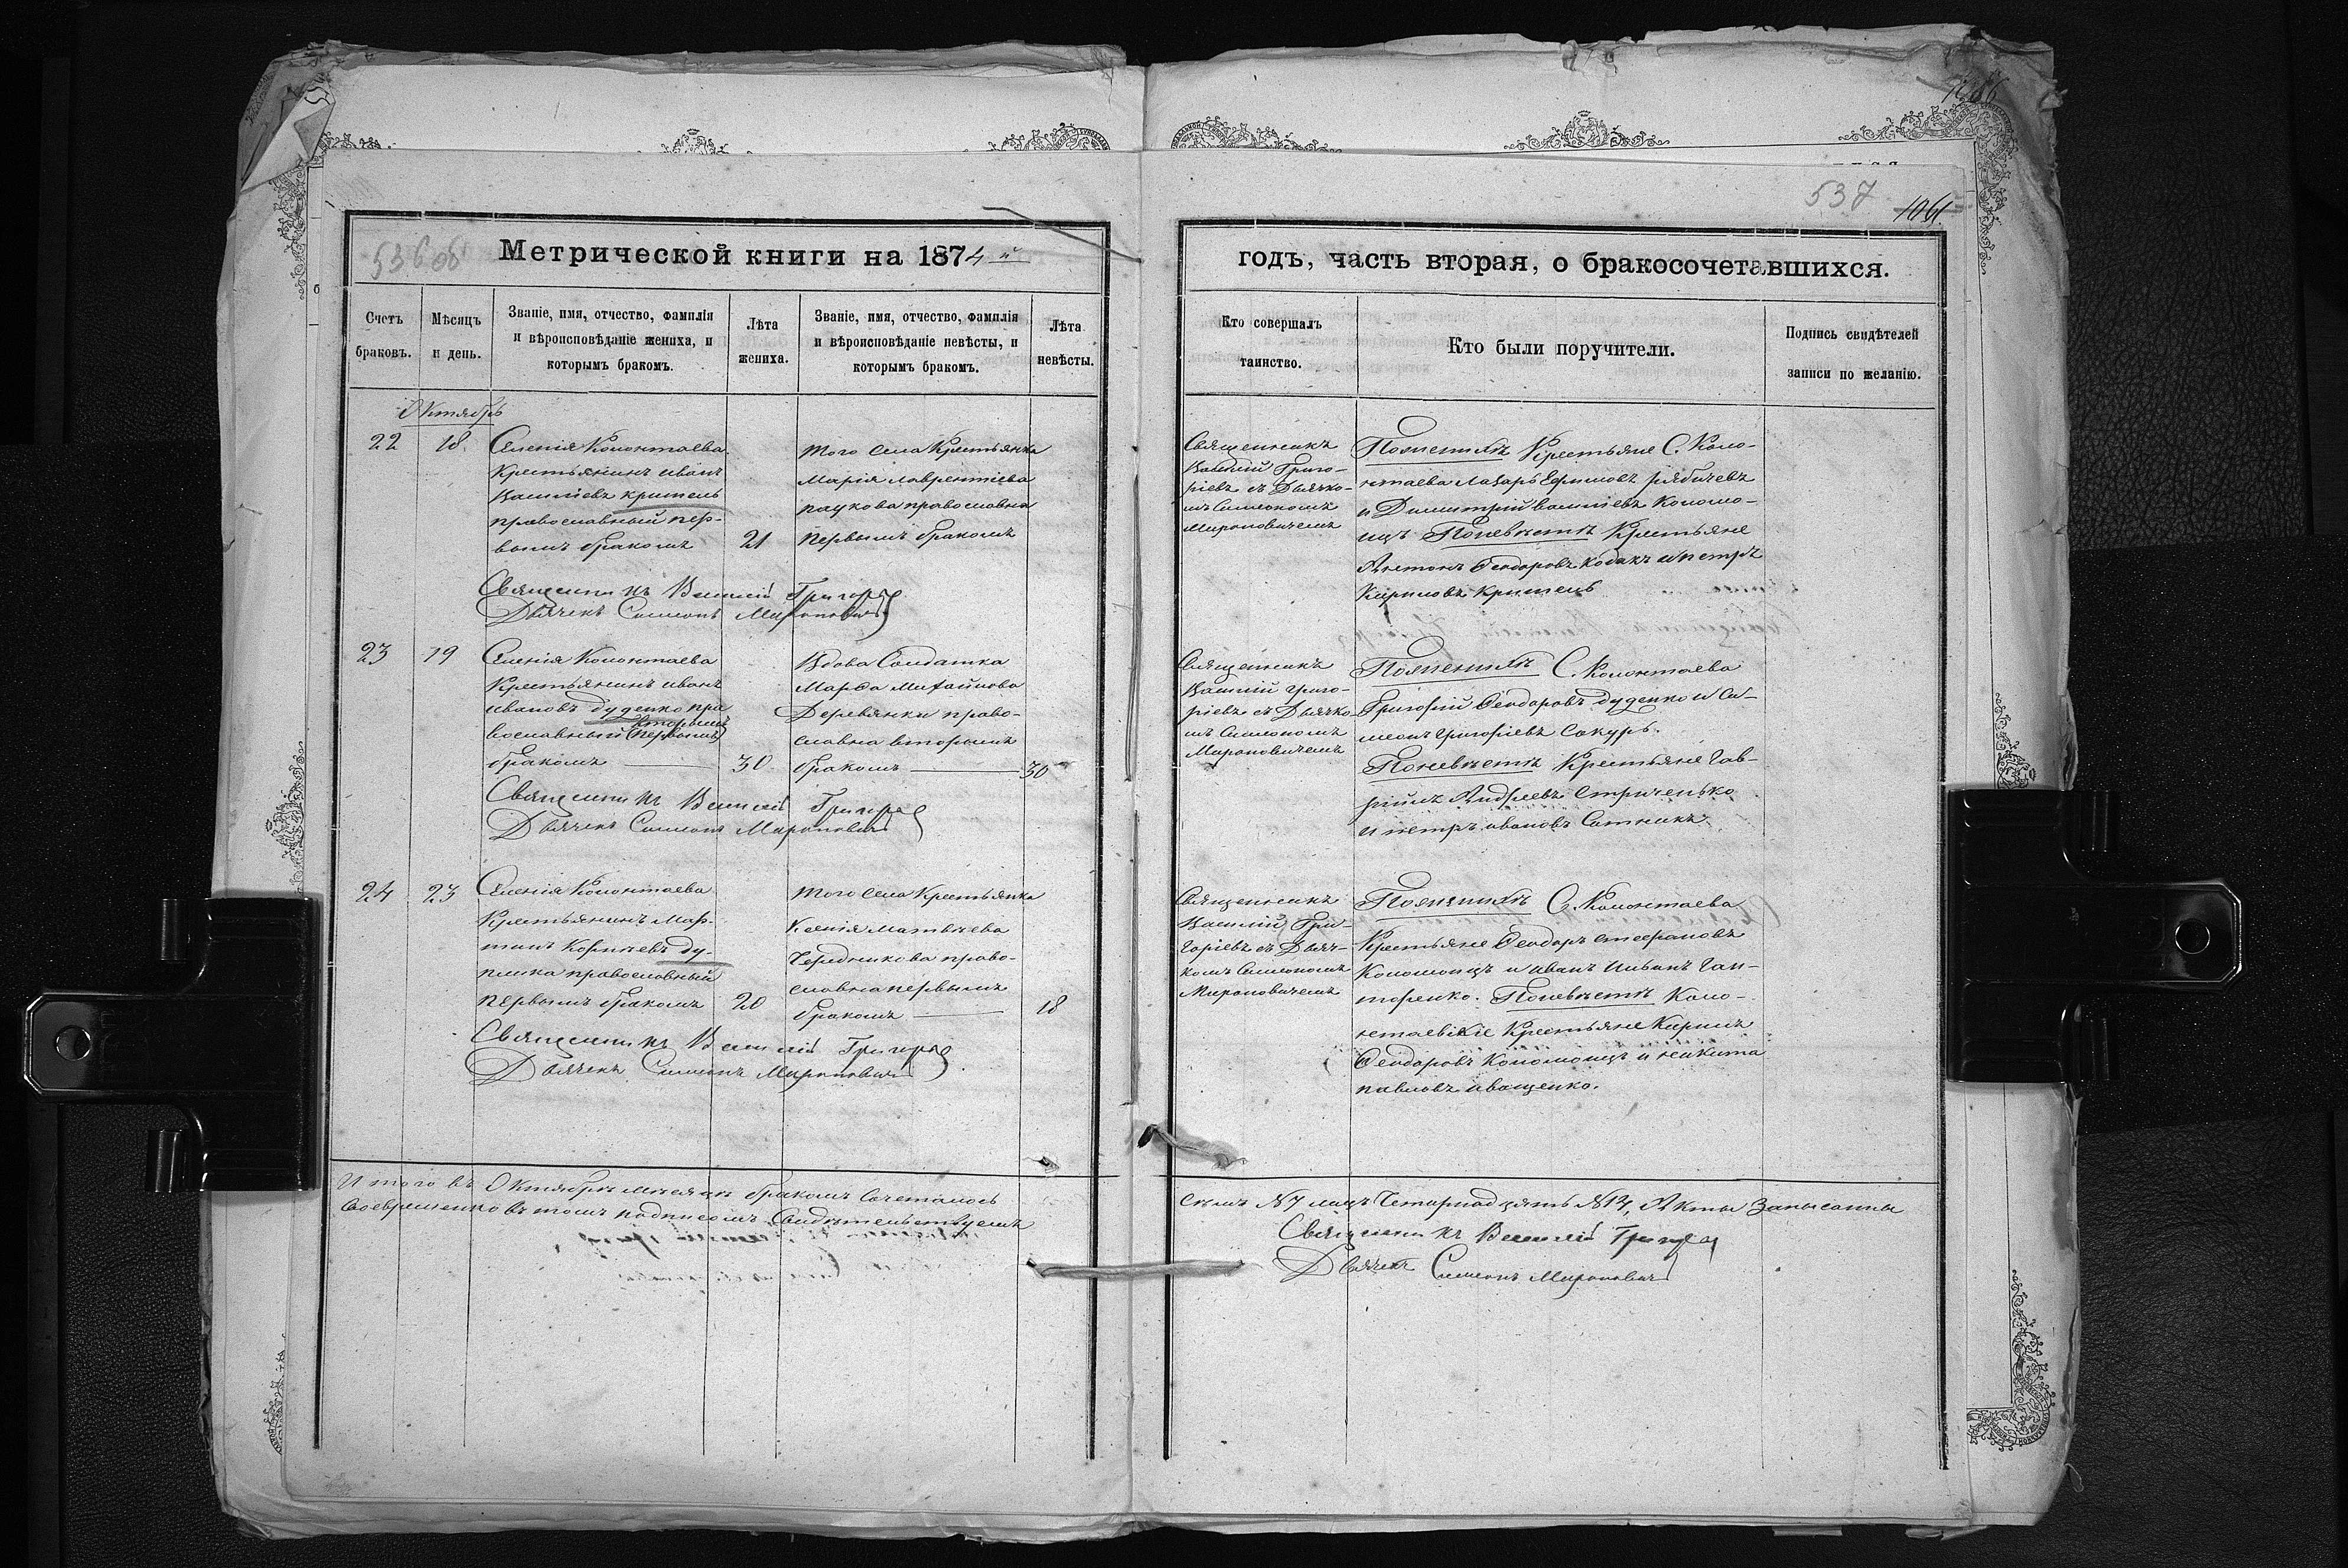 1066
537
1061.
536 об
Метрической книги на 1874 й
годъ, часть вторая, о бракосочетавшихся.
Счетъ
браковъ.
Мѣсяцъ
и день.
Званіе, имя, отчество, фамилія
и вѣроисповѣданіе жениха, и
которымъ бракомъ.
Лѣта
жениха.
Званіе, имя, отчество, фамилія
и вѣроисповѣданіе невѣсты, и
которымъ бракомъ.
Лѣта
невѣсты.
Кто совершалъ
таинство.
Кто были поручители.
Подпись свидѣтелей
записи по желанію.
Октябрь
22
18.
Селенія Колонтаева
Крестьянинъ иванъ
Василіевъ
православный пер-
вымъ бракомъ
21
того села Крестьянка
Марія лаврентіева
раукова православна
первымъ бракомъ
Священникъ
Василій Григо-
ріевъ съ Дьячко-
мъ Симеономъ
Мироновичемъ
Поженихѣ Крестьяне С. Коло-
нтаева Лазарь Ефимовъ рябичевъ
и Димитрій василіевъ Коломо-
ицъ Поневѣстѣ Крестьяне
Антонъ Феодоровъ кодакъ и петръ
Кириловъ
Священникъ Василій Григор
Дьячекъ Симеонъ Мироновичъ
23
19
Селенія Колонтаева
Крестьянинъ иванъ
ивановъ дуденко пра
вторымъ
вославный (первымъ)
бракомъ
30
Вдова Солдатка
Марфа Михайлова
Деревянки право-
славна вторымъ
бракомъ
30
Священникъ
Василій григо-
ріевъ съ Дьячко
мъ Симеономъ
Мироновичемъ
Поженихѣ С. Колонтаева
Григорій Феодоровъ дуденко и Си-
меонъ григоріевъ Сокуръ.
Поневѣстѣ Крестьяне гав-
ріилъ Андреевъ Стриченько
и петръ ивановъ Сотникъ
Священникъ Василій Григор
Дьячекъ Симеонъ Мироновичъ
24
23
Селенія Колонтаева
Крестьянинъ Мар-
тинъ Корніевъ ду-
плика православный
первымъ бракомъ
20
того села Крестьянка
Ксенія матвѣева
Чередникова право-
славна первымъ
бракомъ
18
Священникъ
Василій Гри-
горіевъ съ Дьяч-
комъ Симеономъ
Мироновичемъ
Поженихѣ С. Колонтаева
Крестьяне Феодоръ стефановъ
Коломоицъ и иванъ Ильинъ ган-
торенко. Поневѣстѣ Коло-
нтаевскіе Крестьяне Кирилъ
Феодоровъ Коломоицъ и никита
павловъ иващенко.
Священникъ Василій Григор
Дьячекъ Симеонъ Мироновичъ
Итого въ Октябрѣ мѣсяцѣ бракомъ сочеталось
своевременно въ томъ подписомъ свидѣтельствуемъ
семь №7 лицъ Четырнадцять №14, Акты Записанны
Священникъ Василій Григор
Дьячекъ Симеонъ Мироновичъ